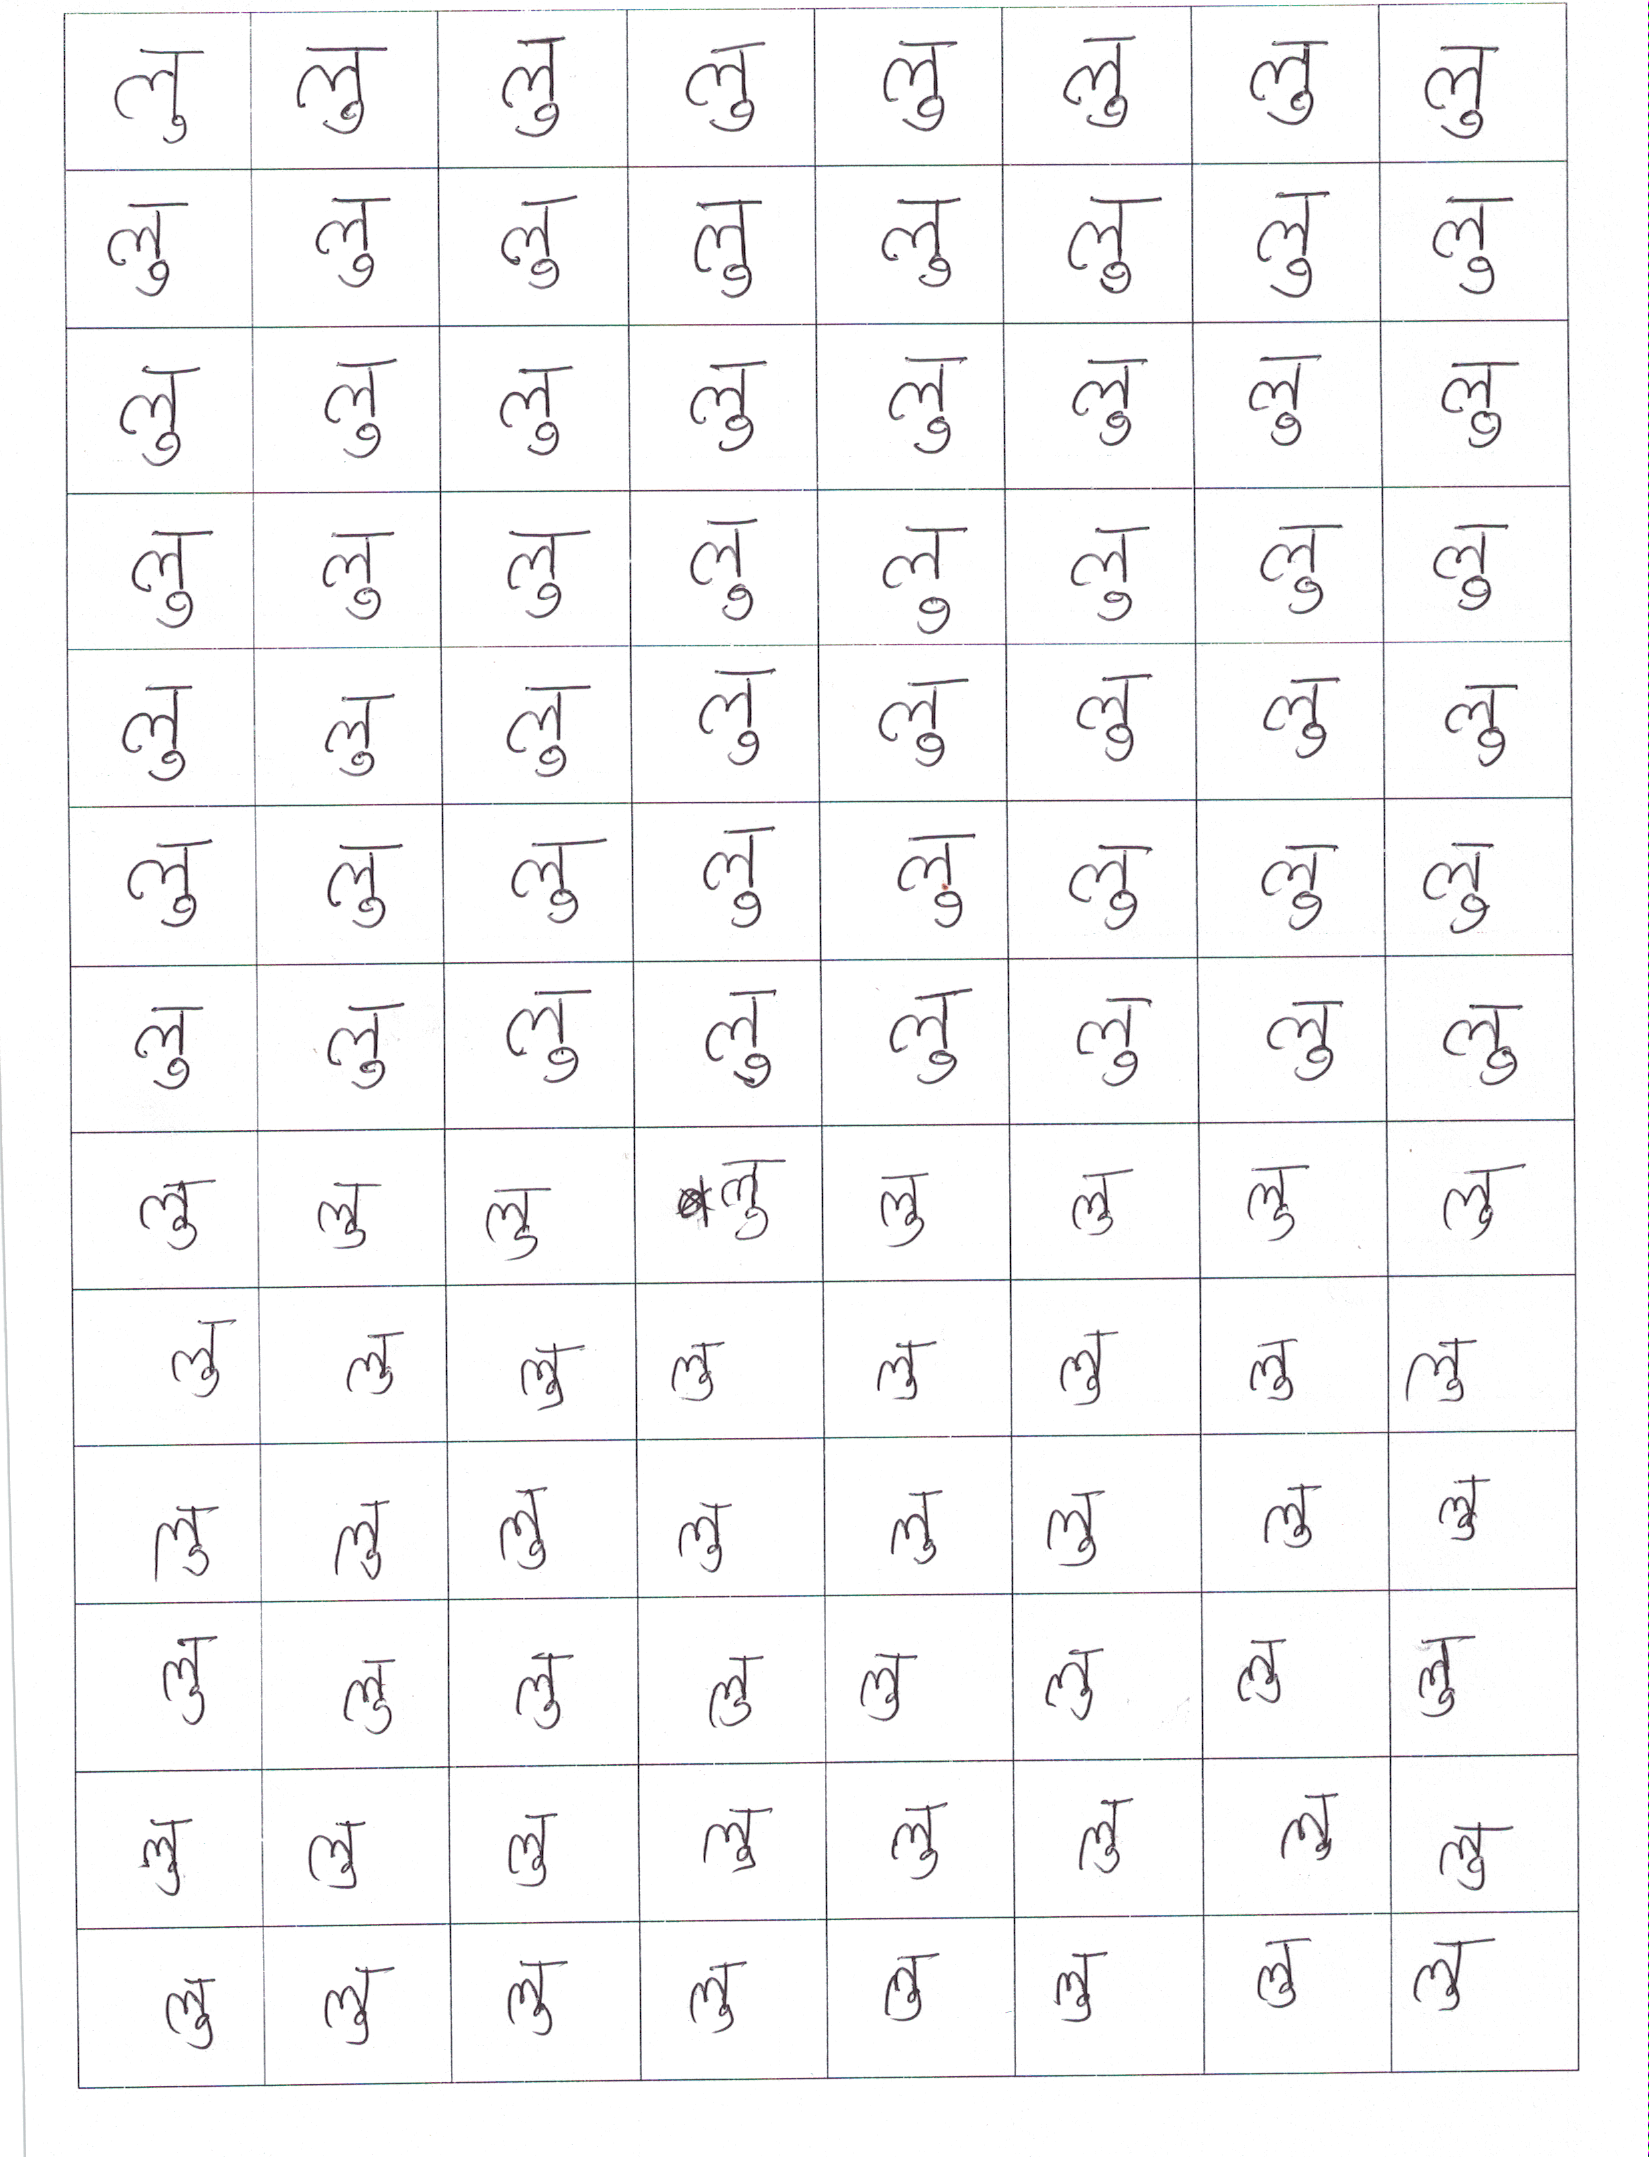 लु लु लु लु लु लु लु लु
लु लु लु लु लु लु लु लु
लु लु लु लु लु लु लु लु
लु लु लु लु लु लु लु लु
लु लु लु लु लु लु लु लु
लु लु लु लु लु लु लु लु
लु लु लु लु लु लु लु लु
लु लु लु लु लु लु लु लु
लु लु लु लु लु लु लु लु
लु लु लु लु लु लु लु लु
लु लु लु लु लु लु लु लु
लु लु लु लु लु लु लु लु
लु लु लु लु लु लु लु लु